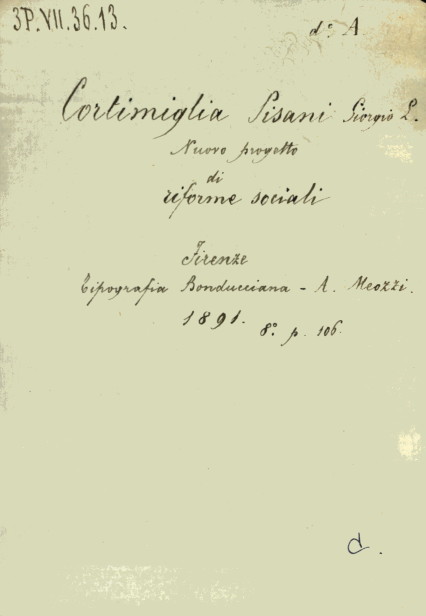 3P.VII.36.13.
d.° A
Cortimiglia Pisani Giorgio L.
Nuovo progetto
di
riforme sociali
Firenze
Tipografia Bonducciana - A. Meozzi.
1891. 8.° p. 106.
C.